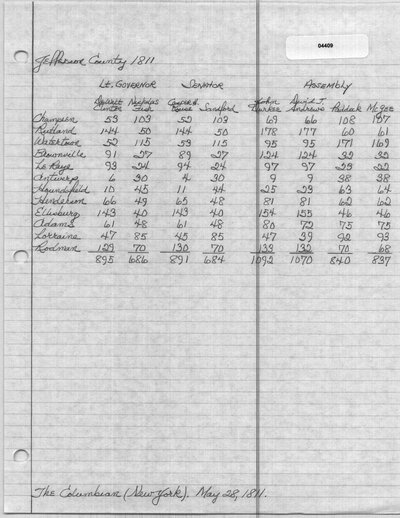 04409
Jefferson County 1811
Lt. Governor Senator Assembly
DeWitt Clinton Nicholas Fish Rouse Sandford John Durkee David I. Andrews Paddock McGee
Champion 53 103 52 103 69 66 108 107
Rutland 144 50 144 50 178 177 60 61
Watertown 52 115 53 115 95 95 171 169
Brownville 91 27 89 27 124 124 32 32
Le Raye 93 24 94 24 97 97 23 22
Antwerp 6 30 4 30 9 9 38 38
Houndsfield 10 45 11 44 25 23 63 64
Henderson 66 49 65 48 81 81 62 62
Ellisburg 143 40 143 40 154 155 46 46
Adams 61 48 61 48 80 72 75 75
Lorraine 47 85 45 85 47 39 92 93
Rodman 129 70 130 70 133 132 70 68
895 686 891 684 1092 1070 840 837
The Columbian (New York). May 28, 1811.